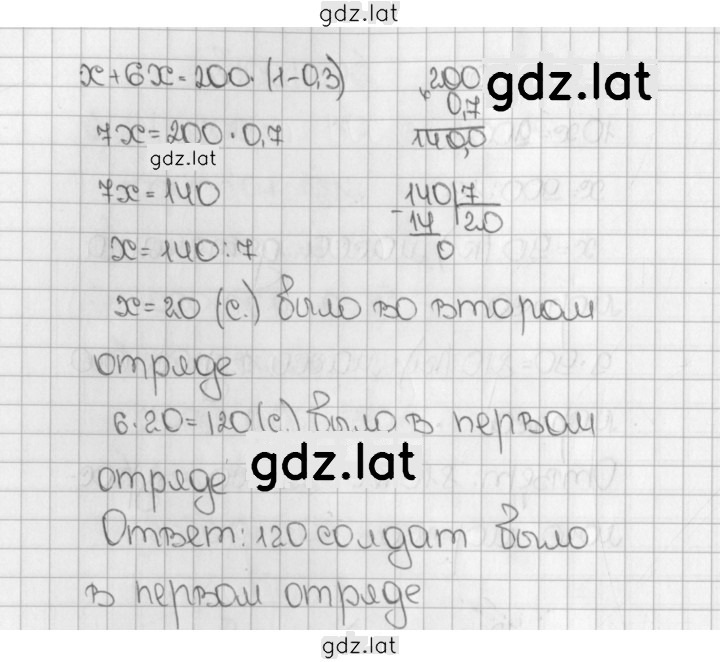 gdz.lat
x+6x=200·(1-0,3)
200
× 0,7
140,0
gdz.lat
7x=200·0,7
gdz.lat
7x=140
140 | 7
- 14 | 20
0
x=140:7
x=20 (с.) было во втором
отряде
6·20=120(с.) было в первом
отряде
gdz.lat
Ответ: 120 солдат было
в первом отряде
gdz.lat